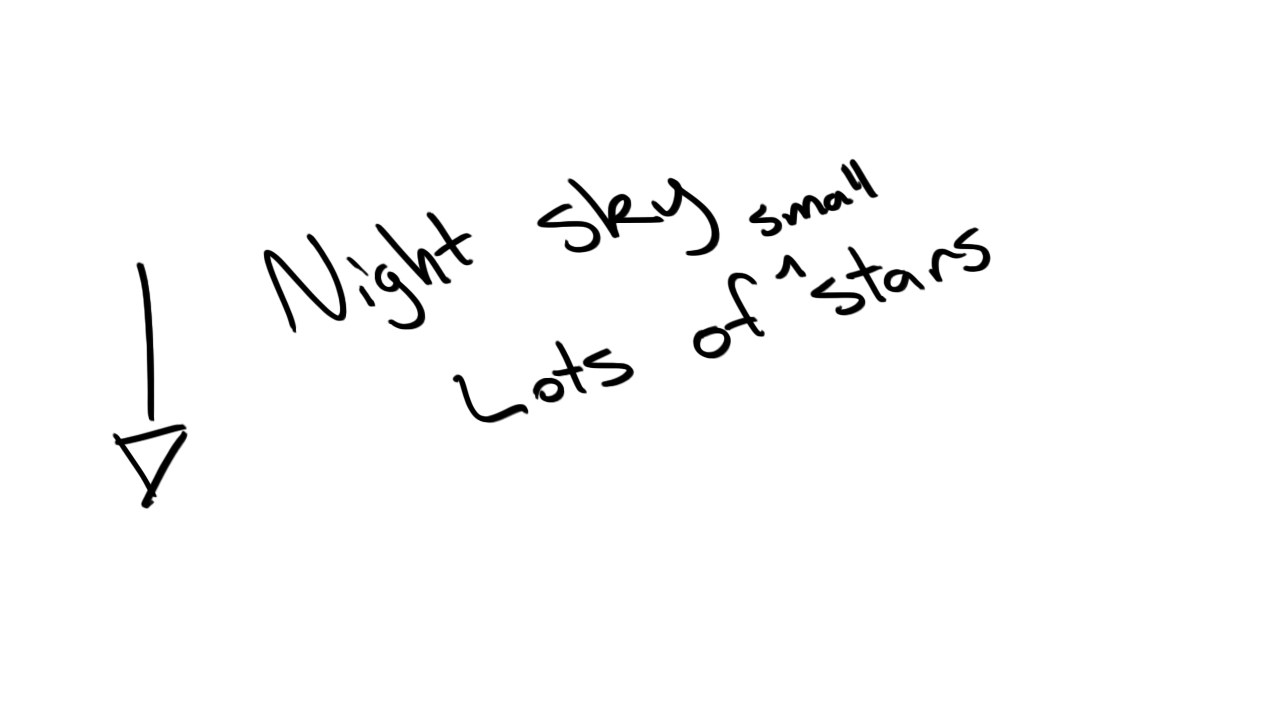 Night sky
Lots of small stars